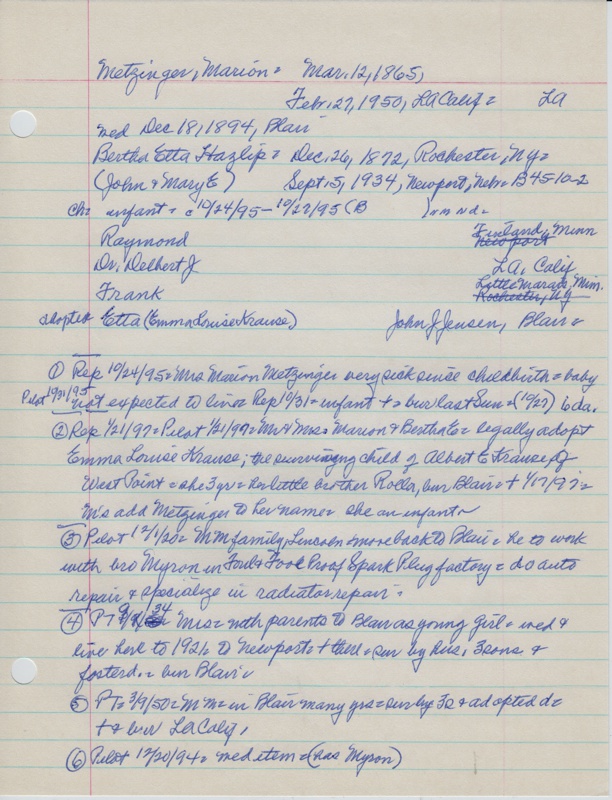 Metzinger, Marion = Mar. 12, 1865,
Febr. 27, 1950, LA Calif = LA
med Dec 18, 1894, Blair
Bertha Etta Hazlip = Dec. 26, 1872, Rochester, Ny =
(John & Mary E) Sept. 5, 1934, Newport, Nebr = B45-10-2
ch = infant = c 10/24/95 - 10/27/95 (B ) = m nd =
Raymond Finland, Minn
Newport
Dr. Delbert J LA, Calif
Frank Little Marais, Minn.
Rochester, NY
adopted Etta (Emma Louise Krause) John J Jensen, Blair =
① Rep 10/24/95 = Mrs Marion Metzinger very sick since childbirth = baby
Pilot 10/31/95 not expected to live = Rep 10/31 = infant + = bur last Sun = (10/27) 6 da.
② Rep 1/21/97 = Pilot 1/21/97 = Mr & Mrs Marion & Bertha E = legally adopt
Emma Louise Krause; the surviving child of Albert E Krause of
West Point = she 3 yr = her little brother Rolla, bur Blair = + 1/17/97 =
M's add Metzinger to her name = she an infant
③ Pilot 12/1/20 = M M family, Lincoln = move back to Blair = he to work
with bro Myron in Foul & Fool Proof Spark Plug factory = do auto
repair & specialize in radiator repair =
④ PT 9/ 34 Mrs = with parents to Blair as young girl = wed &
live here to 1921 = to Newport = + there = sur by hus, 3 sons &
foster d. = bur Blair =
⑤ PT = 3/9/50 = M M = in Blair many yrs = sur by 3 s & adopted d =
+ & bur LA Calif,
⑥ Pilot 12/20/94 = wed item = (has Myron)